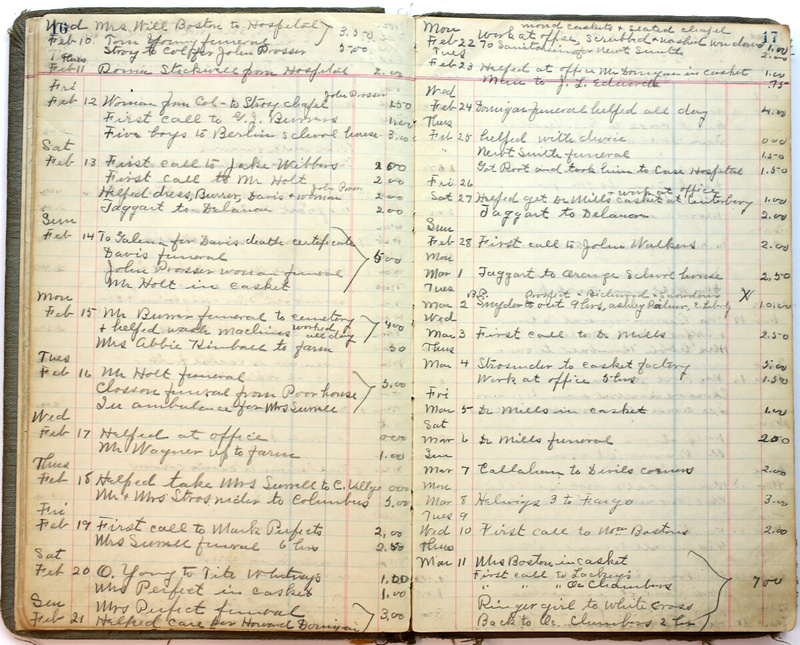 16
Wed Mrs Will Boston to Hospital
Feb 10 Tom Young funeral 3.50
Stroy to Col for John Prosser 5.00
Thurs
Feb 11 Roma Stockwell from Hospital 2.00
Fri
Feb 12 Woman from Col - to Stroy chapel John Prosser 1.50
First call to G.J. Burrers 1.00
Five boys to Berlin school house 3.00
Sat
Feb 13 First call to Jake Wibbins 2.00
First call to Mr Holt 2.00
Helped dress, Burrer, Davis & woman 2.00
Taggart to Delanon 2.00
Sun
Feb 14 To Galena for Davis death certificate
Davis funeral 5.00
John Prosser woman funeral
Mr Holt in casket
Mon
Feb 15 Mr Burrer funeral to cemetery
& helped wash machines worked all day 4.00
Mrs Abbie Kimball to farm 50
Tues
Feb 16 Mr Holt funeral
Closson funeral from Poorhouse 5.00
In ambulance for Mrs Surrell
Wed
Feb 17 Helped at office 000
Mr Wagner up to farm 1.00
Thus
Feb 18 Helped take Mrs Surrell to C. Village 000
Mr & Mrs Strosnider to Columbus 5.00
Fri
Feb 19 First call to Mark Perfects 2.00
Mrs Surrell funeral 6 hrs 2.50
Sat
Feb 20 O. Young to Pete Whitneys 1.00
Mrs Perfect in casket 1.00
Sun Mrs Perfect funeral
Feb 21 Helped care for Howard Donigan 3.00
17
Mon moved caskets & seated chapel
Feb 22 Work at office, Scrubbed & washed windows 1.00
Tues To Sanitarium for Newt Smith 2.00
Feb 23 Helped at office Mr Donigan in casket 1.00
Man to J. L. Edwards .75
Wed
Feb 24 Donigan funeral helped all day 4.00
Thus
Feb 25 helped with 000
" Newt Smith funeral 1.50
Got Root and took him to Case Hospital 1.50
Fri 26 work at office
Sat 27 Helped get Dr Mills casket at Centerburg 1.00
Taggart to Delanon 2.00
Sun
Feb 28 First call to John Walkers 2.00
Mon
Mar 1 Taggart to Orange School house 2.50
Tues
Mar 2 Snyder to out 9 hrs, Ashley 10.00
Wed
Mar 3 First call to Dr Mills 2.50
Thus
Mar 4 Strosnider to casket factory 5.00
Work at office 5 hrs 1.50
Fri
Mar 5 Dr Mills in casket 1.00
Sat
Mar 6 Dr Mills funeral 2.00
Sun
Mar 7 Callahan to Devils corners 2.00
Mon
Mar 8 Helwigs 3 to Fargo 3.00
Tues 9
Wed 10 First call to Wm Bostons 2.00
Thus
Mar 11 Mrs Boston in casket
First call to Lackeys
" " " Or Chambers 7.00
Ringer girl to White Cross
Back to Or Chambers 2 hr